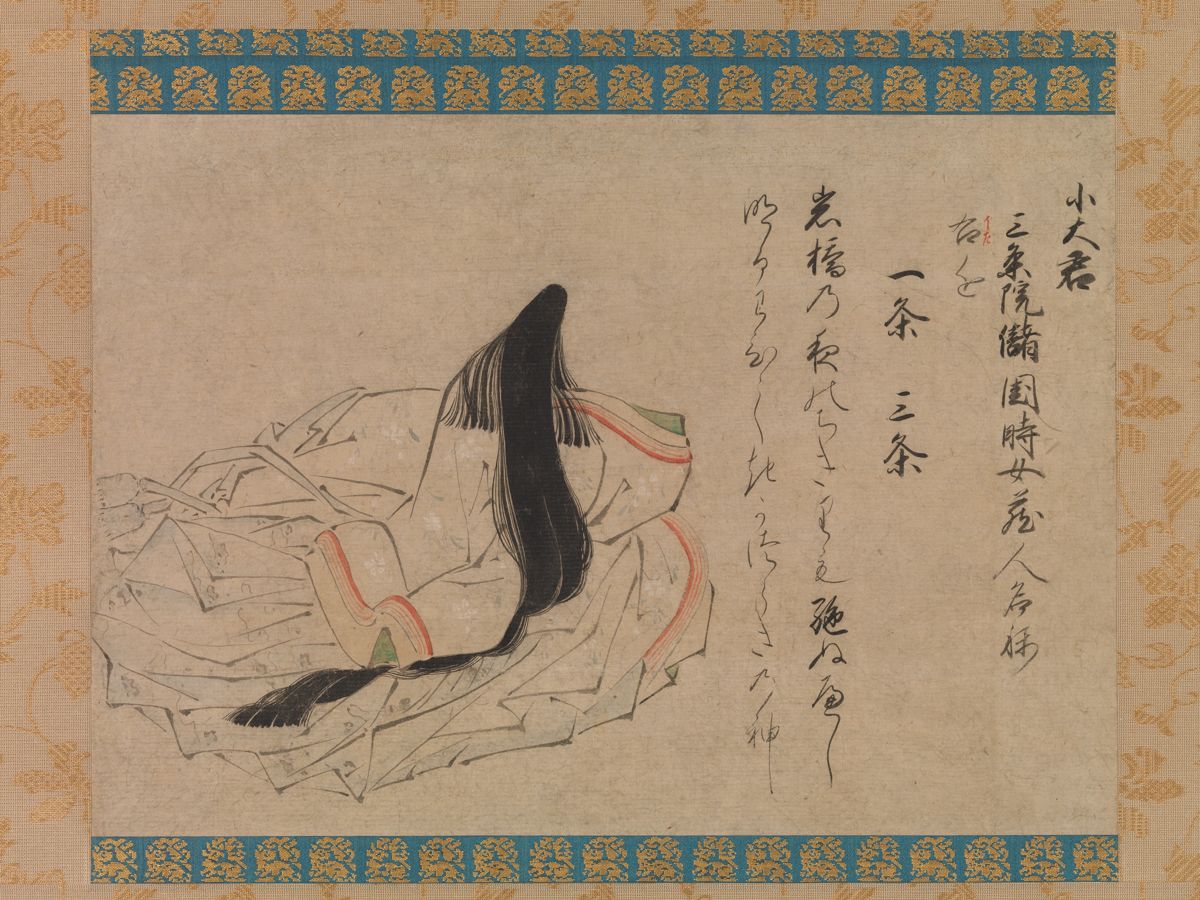 小大君
三条院儲時女蔵人
一条 三条
岩橋乃夜能ちきりも絶ぬへし
明るわひしき可つらき乃神